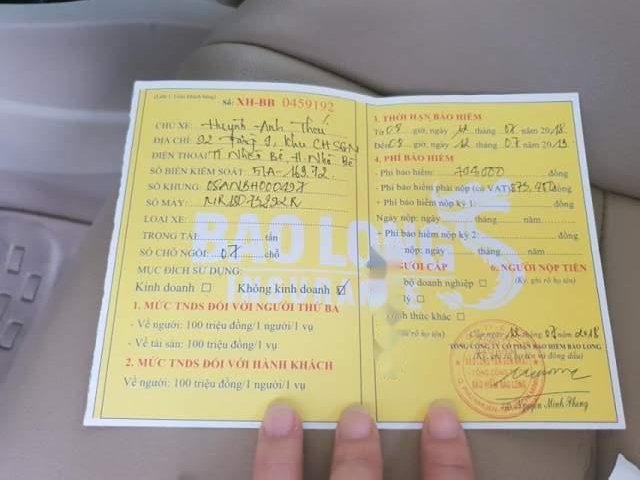 Số: XH-BB 0459192
CHỦ XE: Huỳnh Anh Thơ
ĐỊA CHỈ: 22 Đường 9, Khu CHSGN
ĐIỆN THOẠI: TT Nhà Bè, H. Nhà Bè
SỐ BIỂN KIỂM SOÁT: 51A-169.72
SỐ KHUNG:
SỐ MÁY:
LOẠI XE:
TRỌNG TẢI: tấn
SỐ CHỖ NGỒI: 07 chỗ
MỤC ĐÍCH SỬ DỤNG:
Kinh doanh Không kinh doanh
1. MỨC TNDS ĐỐI VỚI NGƯỜI THỨ BA
- Về người: 100 triệu đồng/1 người/1 vụ
- Về tài sản: 100 triệu đồng/1 vụ
2. MỨC TNDS ĐỐI VỚI HÀNH KHÁCH
Về người: 100 triệu đồng/1 người/1 vụ
BAO LONG
3. THỜI HẠN BẢO HIỂM
Từ 08 giờ, ngày 12 tháng 07 năm 2018
Đến 08 giờ, ngày 12 tháng 07 năm 2019
4. PHÍ BẢO HIỂM
- Phí bảo hiểm: 794000 đồng
- Phí bảo hiểm phải nộp (cả VAT) 873.400 đồng
+ Phí bảo hiểm nộp kỳ 1: đồng
Ngày nộp: tháng năm
+ Phí bảo hiểm nộp kỳ 2: đồng
nộp: tháng năm
NGƯỜI CẤP
6. NGƯỜI NỘP TIỀN
bộ doanh nghiệp
(Ký, ghi rõ họ tên)
lý
thức khác)
Cấp ngày 12 tháng 07 năm 2018
TỔNG CÔNG TY CỔ PHẦN BẢO HIỂM BẢO LONG
BẢO HIỂM BẢO LONG
Nguyễn Minh Phong